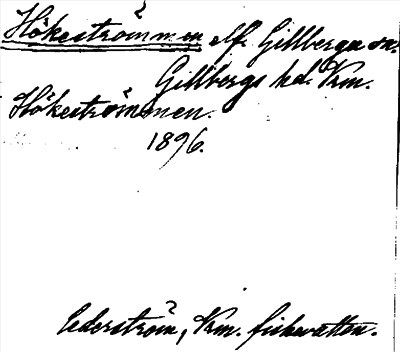 Hökeströmmen elf. Gillberga sn.
Gillbergs hd. Vrm.
Hökeströmmen.
1896.
Cederström, Vrm. fiskevatten.